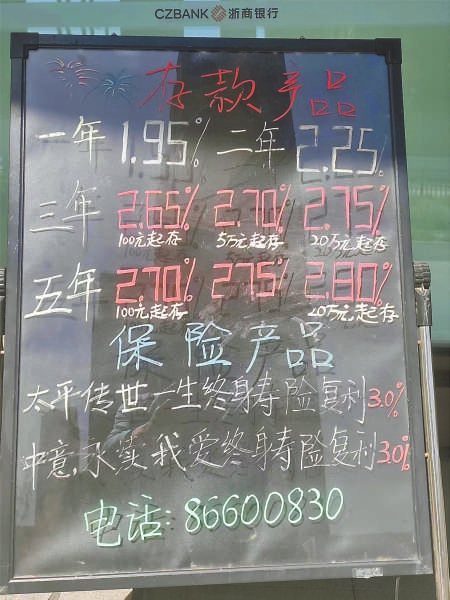 CZBANK 浙商银行
存款产品
一年 1.95% 二年 2.25%
三年 2.65% 2.70% 2.75%
100元起存 5万元起存 20万元起存
五年 2.70% 2.75% 2.80%
100元起存 20万元起存
保险产品
太平传世一生终身寿险复利3.0%
中意,永续我爱终身寿险复利3.0%
电话:86600830